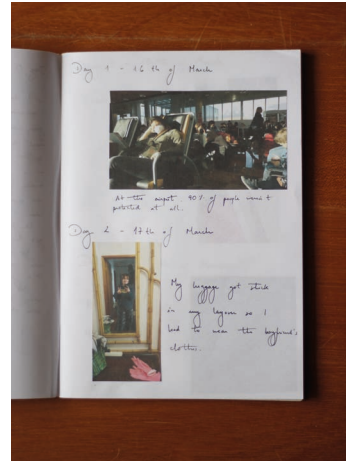 Day 1 - 16 th of March
At the airport 90% of people weren't
protected at all.
Day 2 - 17 th of March
My luggage got stuck
in my layover so I
had to wear the boyfriend's
clothes.